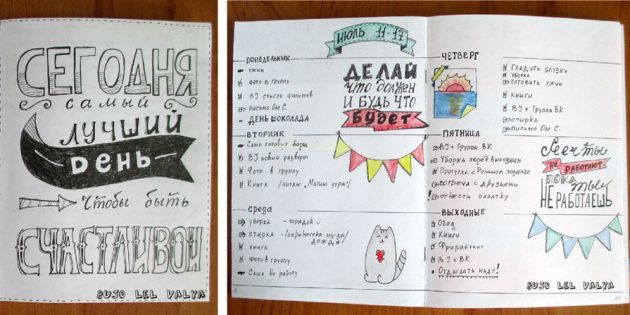 СЕГОДНЯ
самый
ЛУЧШИЙ
ДЕНЬ
Чтобы быть
СЧАСТЛИВОЙ
BUJO LEL VALYA
ИЮЛЬ 11-17
ПОНЕДЕЛЬНИК
Фото в группу
BJ список фильмов
письмо Оле С.
ДЕНЬ ШОКОЛАДА
ДЕЛАЙ
ЧТО ДОЛЖЕН
И БУДЬ ЧТО
БУДЕТ
ВТОРНИК
Саша готовит борщ
BJ новый разворот
Фото в группу
Книга
Среда
уборка - порядок
стирка -
дождя
книга
фото в группу
Саше на работу
ЧЕТВЕРГ
ГЛАДИТЬ БЛУЗКИ
уборка
готовить ужин
книги
BJ + Группа ВК
стирка
письмо Оле С.
ПЯТНИЦА
BJ + Группа ВК
Уборка перед выходными
встреча с друзьями
отнести палатку
Если ты
не РАБОТАЮТ
ПОКА
ты
НЕ РАБОТАЕШЬ
ВЫХОДНЫЕ
Обед
Книги
Фрирайтинг
BJ + ВК
Отдыхать надо!
BUJO LEL VALYA